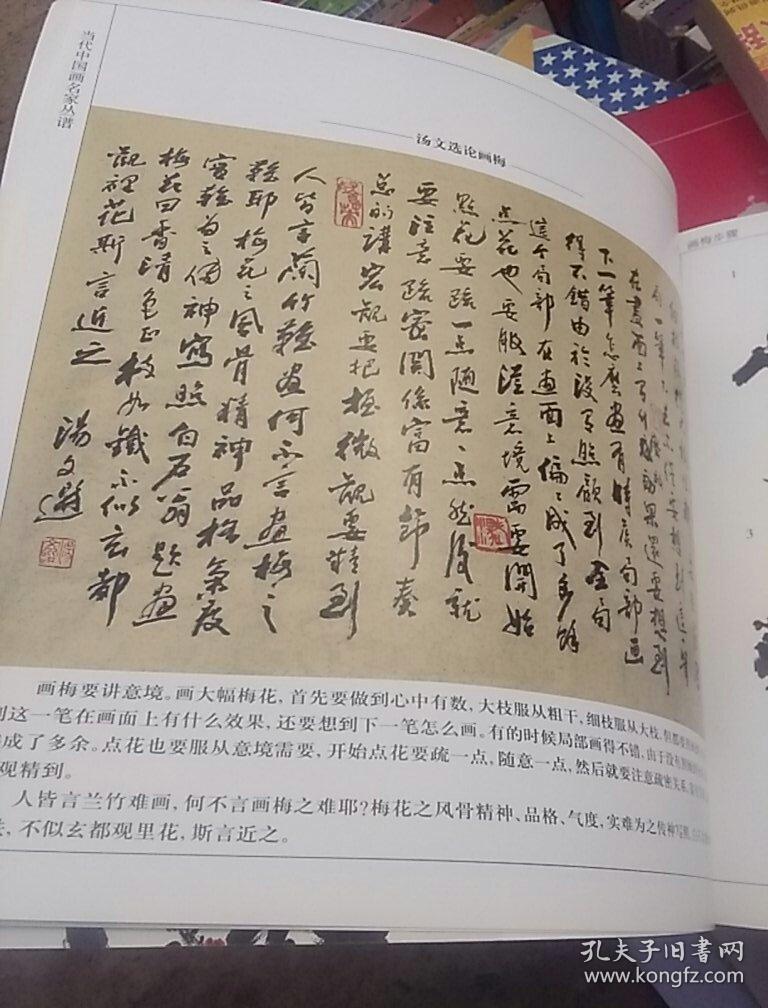 当代中国画名家丛谱
汤文选论画梅
在画面上有什么效果还要想到
下一笔怎么画有时候局部画
得不错由於没有照顾到全局
這个局部在画面上偏偏成了多馀
点花也要服從意境需要開始
點花要疏一点随意一点然後就
要注意疏密関係富有節奏
总的講宏觀要把握微觀要精到
人皆言蘭竹難画何不言画梅之
難耶梅花之風骨精神品格氣度
實難為之傳神寫照白石翁題画
梅花曰香清色正枝如鐵不似玄都
觀裡花斯言近之
湯文選
画梅要讲意境。画大幅梅花，首先要做到心中有数，大枝服从粗干，细枝服从大枝，但都
到这一笔在画面上有什么效果，还要想到下一笔怎么画。有的时候局部画得不错，由于没有
成了多余。点花也要服从意境需要，开始点花要疏一点，随意一点，然后就要注意疏密关系，
观精到。
人皆言兰竹难画，何不言画梅之难耶？梅花之风骨精神、品格、气度，实难为之传神写照，
不似玄都观里花，斯言近之。
画梅步骤
1
3
孔夫子旧书网
www.kongfz.com